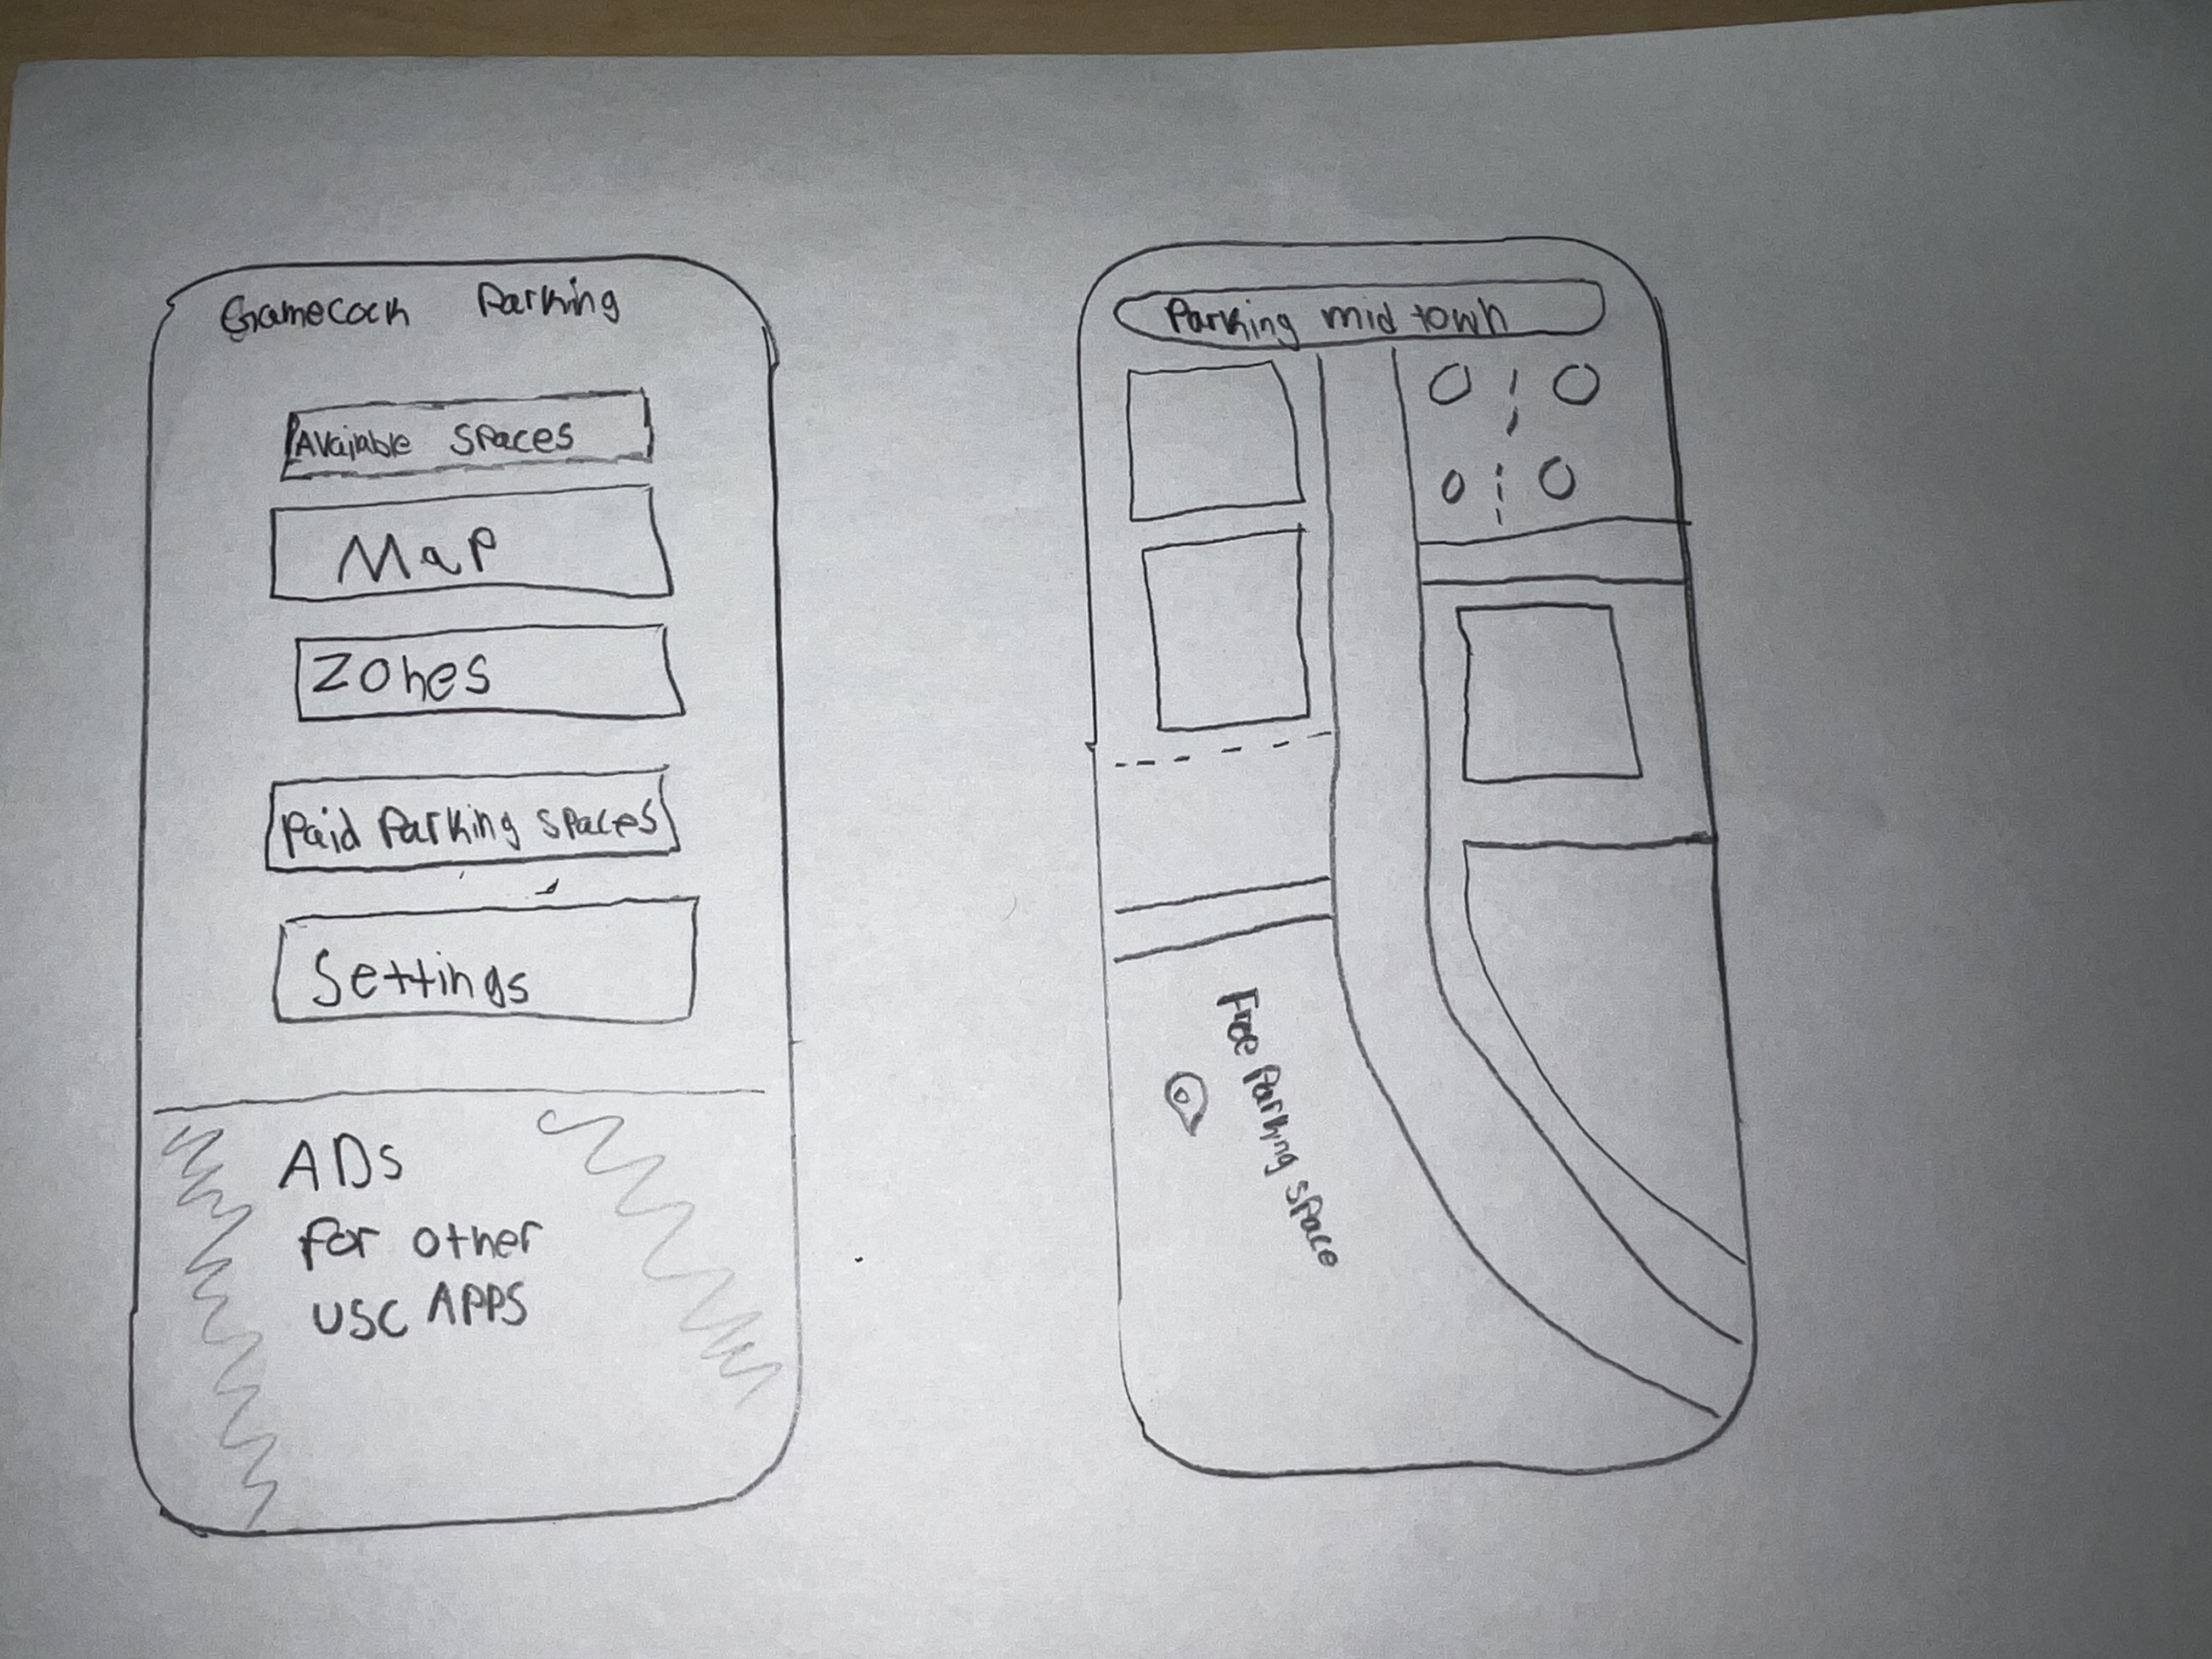 Gamecock Parking
Available Spaces
Map
Zones
Paid Parking Spaces
Settings
ADs
for other
USC APPS
Parking mid town
Free Parking Space